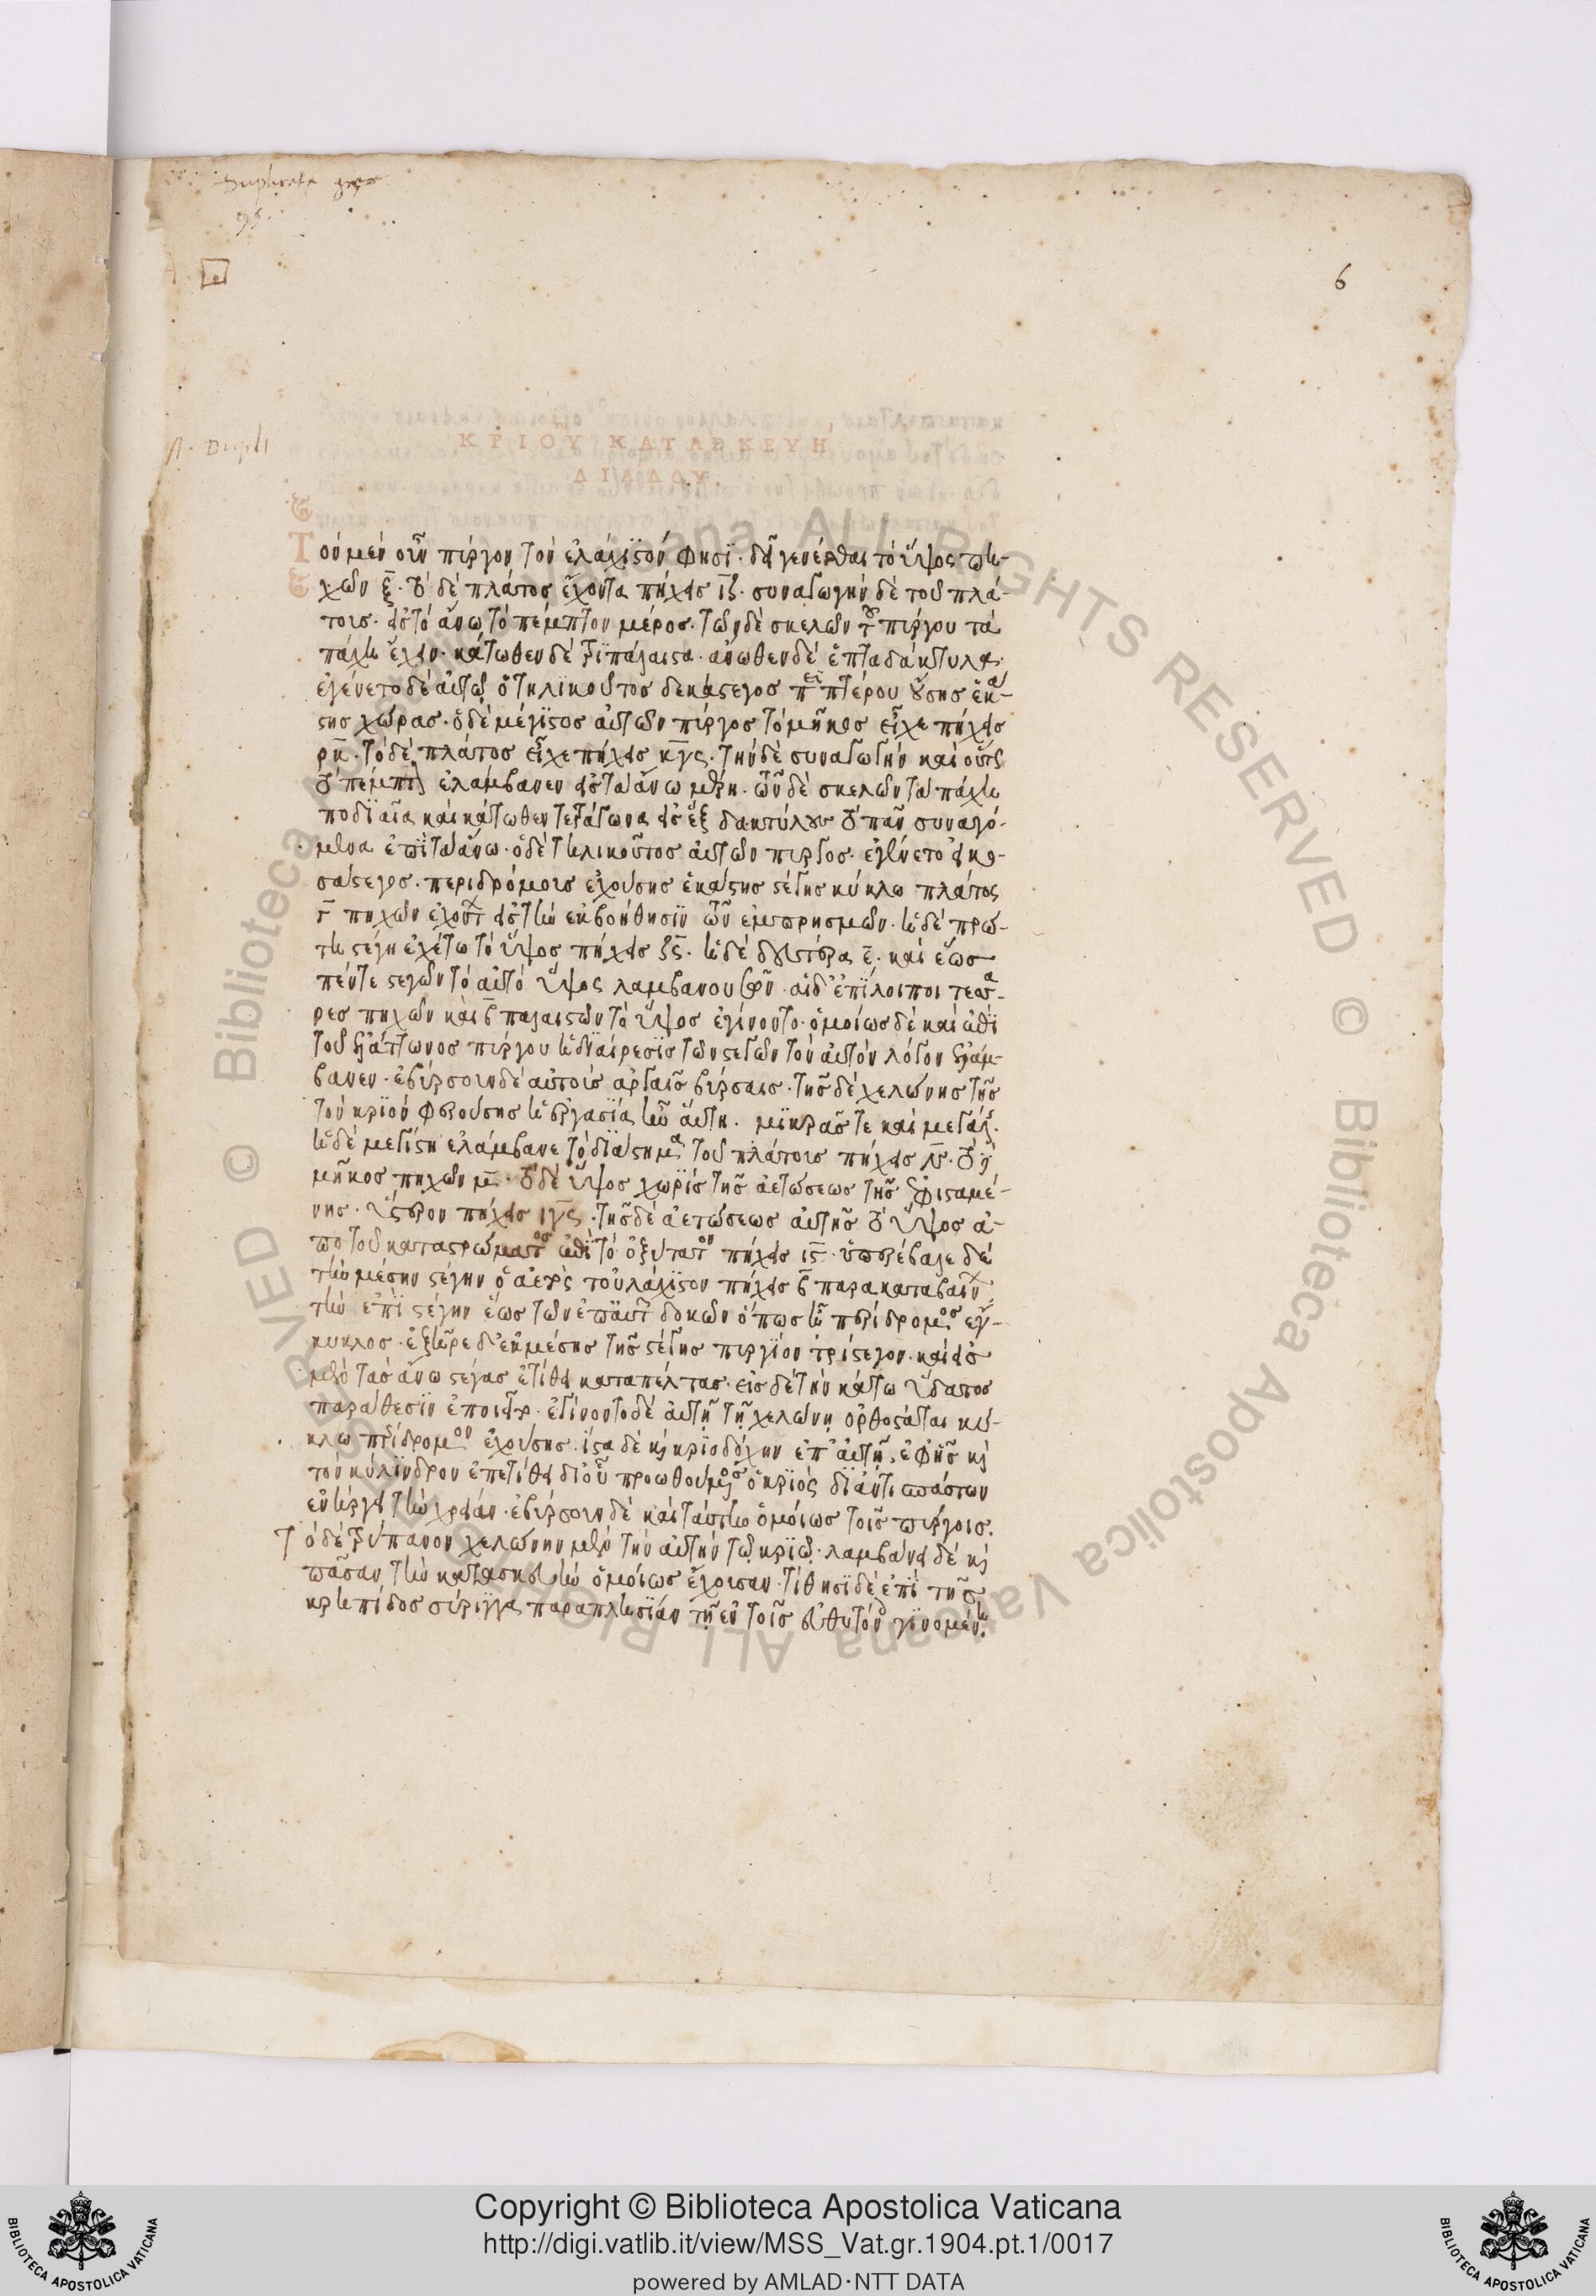 6
ΚΡΙΟΥ ΚΑΤΑΣΚΕΥΗ
ΔΙΑΔΟΥ.
Τὸν μὲν οὖν πύργον τὸν ἐλάχιστόν φησὶ. δεῖ γενέσθαι τὸ ὕψος πη-
χῶν ξ. τὸ δὲ πλάτος ἔχοντα πήχεις ιζ. συναγωγὴν δὲ τοῦ πλά-
τους. εἰς τὸ ἄνω τὸ πέμπτον μέρος. τῶν δὲ σκελῶν τοῦ πύργου τὰ
πάχη ἔχειν. κάτωθεν δὲ τριπάλαιστα. ἄνωθεν δὲ ἑπταδάκτυλα.
ἐγένετο δὲ αὐτῷ ὁ τηλικοῦτος δεκάστεγος περιπτέρου οὔσης ἑκά-
στης χώρας. ὁ δὲ μέγιστος αὐτῶν πύργος τὸ μῆκος εἶχε πήχεις
ρκ. τὸ δὲ πλάτος εἶχε πήχεις κγς. τὴν δὲ συναγωγὴν καὶ οὗτος
τὸ πέμπτον ἐλάμβανεν εἰς τὰ ἄνω μέρη. τῶν δὲ σκελῶν τὰ πάχη
ποδιαῖα καὶ κάτωθεν τετράγωνα εἰς ἓξ δακτύλους τὸ πᾶν συναγό-
μενα ἐπὶ τὰ ἄνω. ὁ δὲ τηλικοῦτος αὐτῶν πύργος. ἐγένετο εἰκο-
σάστεγος. περιδρόμους ἐχούσης ἑκάστης στέγης κύκλω πλάτος
γ πηχῶν
τη στέγη ἐχέτω τὸ ὕψος πήχεις ζς. ἡ δὲ δευτέρα ε. καὶ ἕως
πέντε στεγῶν τὸ αὐτὸ ὕψος λαμβάνουσιν. αἱ δ' ἐπίλοιποι τέσσα-
ρες πηχῶν καὶ β παλαιστῶν τὸ ὕψος ἐγίνοντο. ὁμοίως δὲ καὶ ἐπὶ
τοῦ ἐλάττωνος πύργου ἡ διαίρεσις τῶν στεγῶν τὸν αὐτὸν λόγον ἐλάμ-
βανεν. ἐβύρσουν δὲ αὐτοὺς ἀργαῖς βύρσαις. τῆς δὲ χελώνης τῆς
τὸν κριὸν φερούσης ἡ ἐργασία ἦν αὕτη. μικρᾶς τε καὶ μεγάλης.
ἡ δὲ μεγίστη ἐλάμβανε τὸ διάστημα τοῦ πλάτους πήχεις λ. τὸ δὲ
μῆκος πηχῶν μ. τὸ δὲ ὕψος χωρὶς τῆς ἀετώσεως τῆς ἐφισταμέ-
νης. ὕστερον πήχεις ιγς. τῆς δὲ ἀετώσεως αὐτῆς τὸ ὕψος ἀ-
πὸ τοῦ καταστρώματος ἐπὶ τὸ ὀξύτατον πήχεις ις. ὑπερέβαλε δὲ
τὴν μέσην στέγην ὁ ἀετὸς τοὐλάχιστον πήχεις β παρακαταβαίνων
τὴν ἐπὶ στέγην ἕως τῶν δοκῶν ὅπως ἦν περίδρομος ἔγ-
κυκλος. ἐξῆρε δ' ἐκ μέσης τῆς στέγης πυργίον τρίστεγον. καὶ εἰς
μὲν τὰς ἄνω στέγας ἐτίθει καταπέλτας. εἰς δὲ τὴν κάτω ὕδατος
παράθεσιν ἐποιεῖτο. ἐγίνοντο δὲ αὐτῇ τῇ χελώνῃ ὀρθοστάται κύ-
κλω περίδρομον ἐχούσης. ἵστα δὲ καὶ κριοδόχην ἐπ' αὐτῇ. ἐφ' ἧς καὶ
τὸν κύλινδρον ἐπετίθει δι' οὗ προωθούμενος ὁ κριὸς δι' ἀντισπάστων
ἐνήργει τὴν χρείαν. ἐβύρσουν δὲ καὶ ταύτην ὁμοίως τοῖς πύργοις.
Τὸ δὲ τρύπανον χελώνην μὲν τὴν αὐτὴν τῷ κριῷ. λαμβάνει δὲ καὶ
πᾶσαν τὴν κατασκευὴν ὁμοίως ἔχουσαν. τίθησι δὲ ἐπὶ τῆς
κρηπίδος σύριγγα παραπλησίαν τῇ ἐν τοῖς εὐθυτόνοις γινομένη.
Copyright © Biblioteca Apostolica Vaticana
http://digi.vatlib.it/view/MSS_Vat.gr.1904.pt.1/0017
powered by AMLAD·NTT DATA
BIBLIOTECA APOSTOLICA VATICANA
BIBLIOTECA APOSTOLICA VATICANA